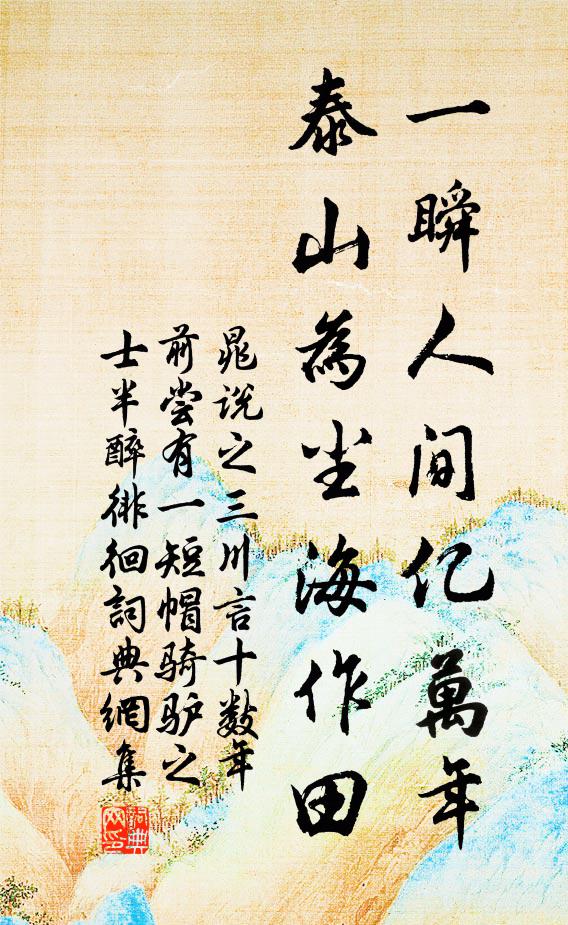 一瞬人间亿萬年
泰山為尘海作田
晁说之三川言十数年
前尝有一短帽骑驴之
士半醉徘徊詞典網集
詞典网印